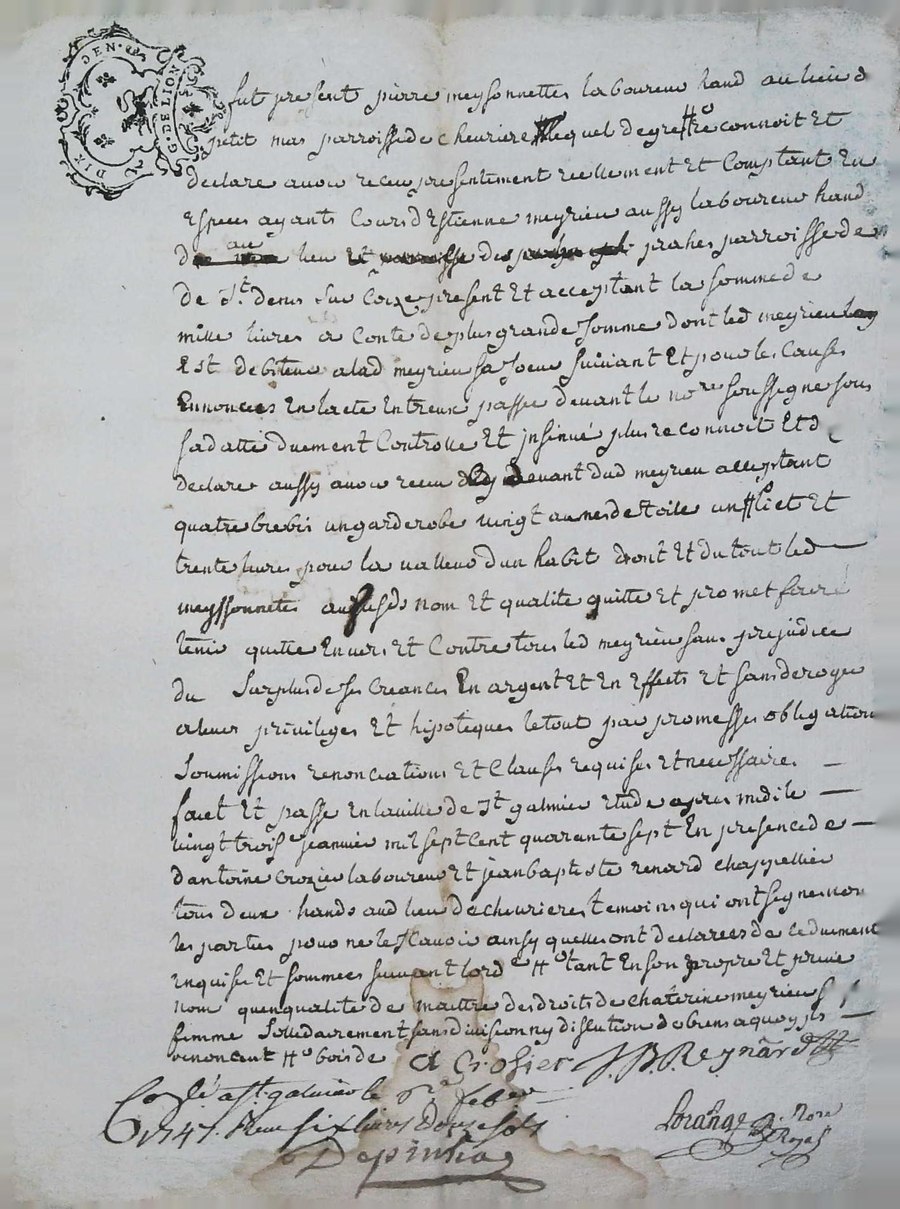 DIX DEN. G. DE LION
fut present pierre meysonnettes laboureur hand au lieu d
petit mas parroisse de chevriere lequel de gre # reconnoit Et
declare avoir receu presentement reellement et Comptant En
Especes ayants Cours d'Estienne meyrieu aussy laboureur hand
au
lieu des prahes parroisse de
de St. denis sur Coize present Et acceptant la somme de
mille livres a Conte de plus grande somme dont led meyrieu
Est debiteur a lad meyrieu sa soeur suivant Et pour les Causes
Ennoncees En lacte Entreux passe devant le nore soussigne sous
sa datte duement Controlle Et jnsinué plus reconnoit Et d
declare aussy avoir receu cy devant dud meyrieu acceptant
quatre brebis un garderobe vingt aunes de toile un # liet Et
trente livres pour la valleur d'un habit dont Et du tout led
meyssonnettes aux susds nom Et qualite quitte Et promet faire
tenir quitte Envers Et Contre tous led meyrieu sans prejudice
du surplus de ses creances En argent Et En Effects Et sans deroger
a leurs privileges Et hipoteques le tout par promesses obligations
soumissions renonciations Et Clauses requises Et necessaires
faict Et passe En la ville de St galmier Etude apres midi le
vingt trois e janvier mil sept Cent quarante sept En presence de
d'antoine Crozier laboureur Et jean baptiste renard chappellier
tous deux hands aud lieu de chevrieres temoins qui ont signe non
les parties pour ne le scavoir ainsy quelles ont declarees de ce duement
Enquises Et sommees suivant lord e # tant En son propre Et prive
nom quen qualite de maitre des droits de Chaterine meyrieu s
femme solledairement sans division ny discution de biens a quoy jls
renoncent # bois de A Crosier J. B. Reynard
Con lé a St galmier le 6 feber
1747. Receu six livres Douze sols
Depinhac
Lorange Nore
Royal